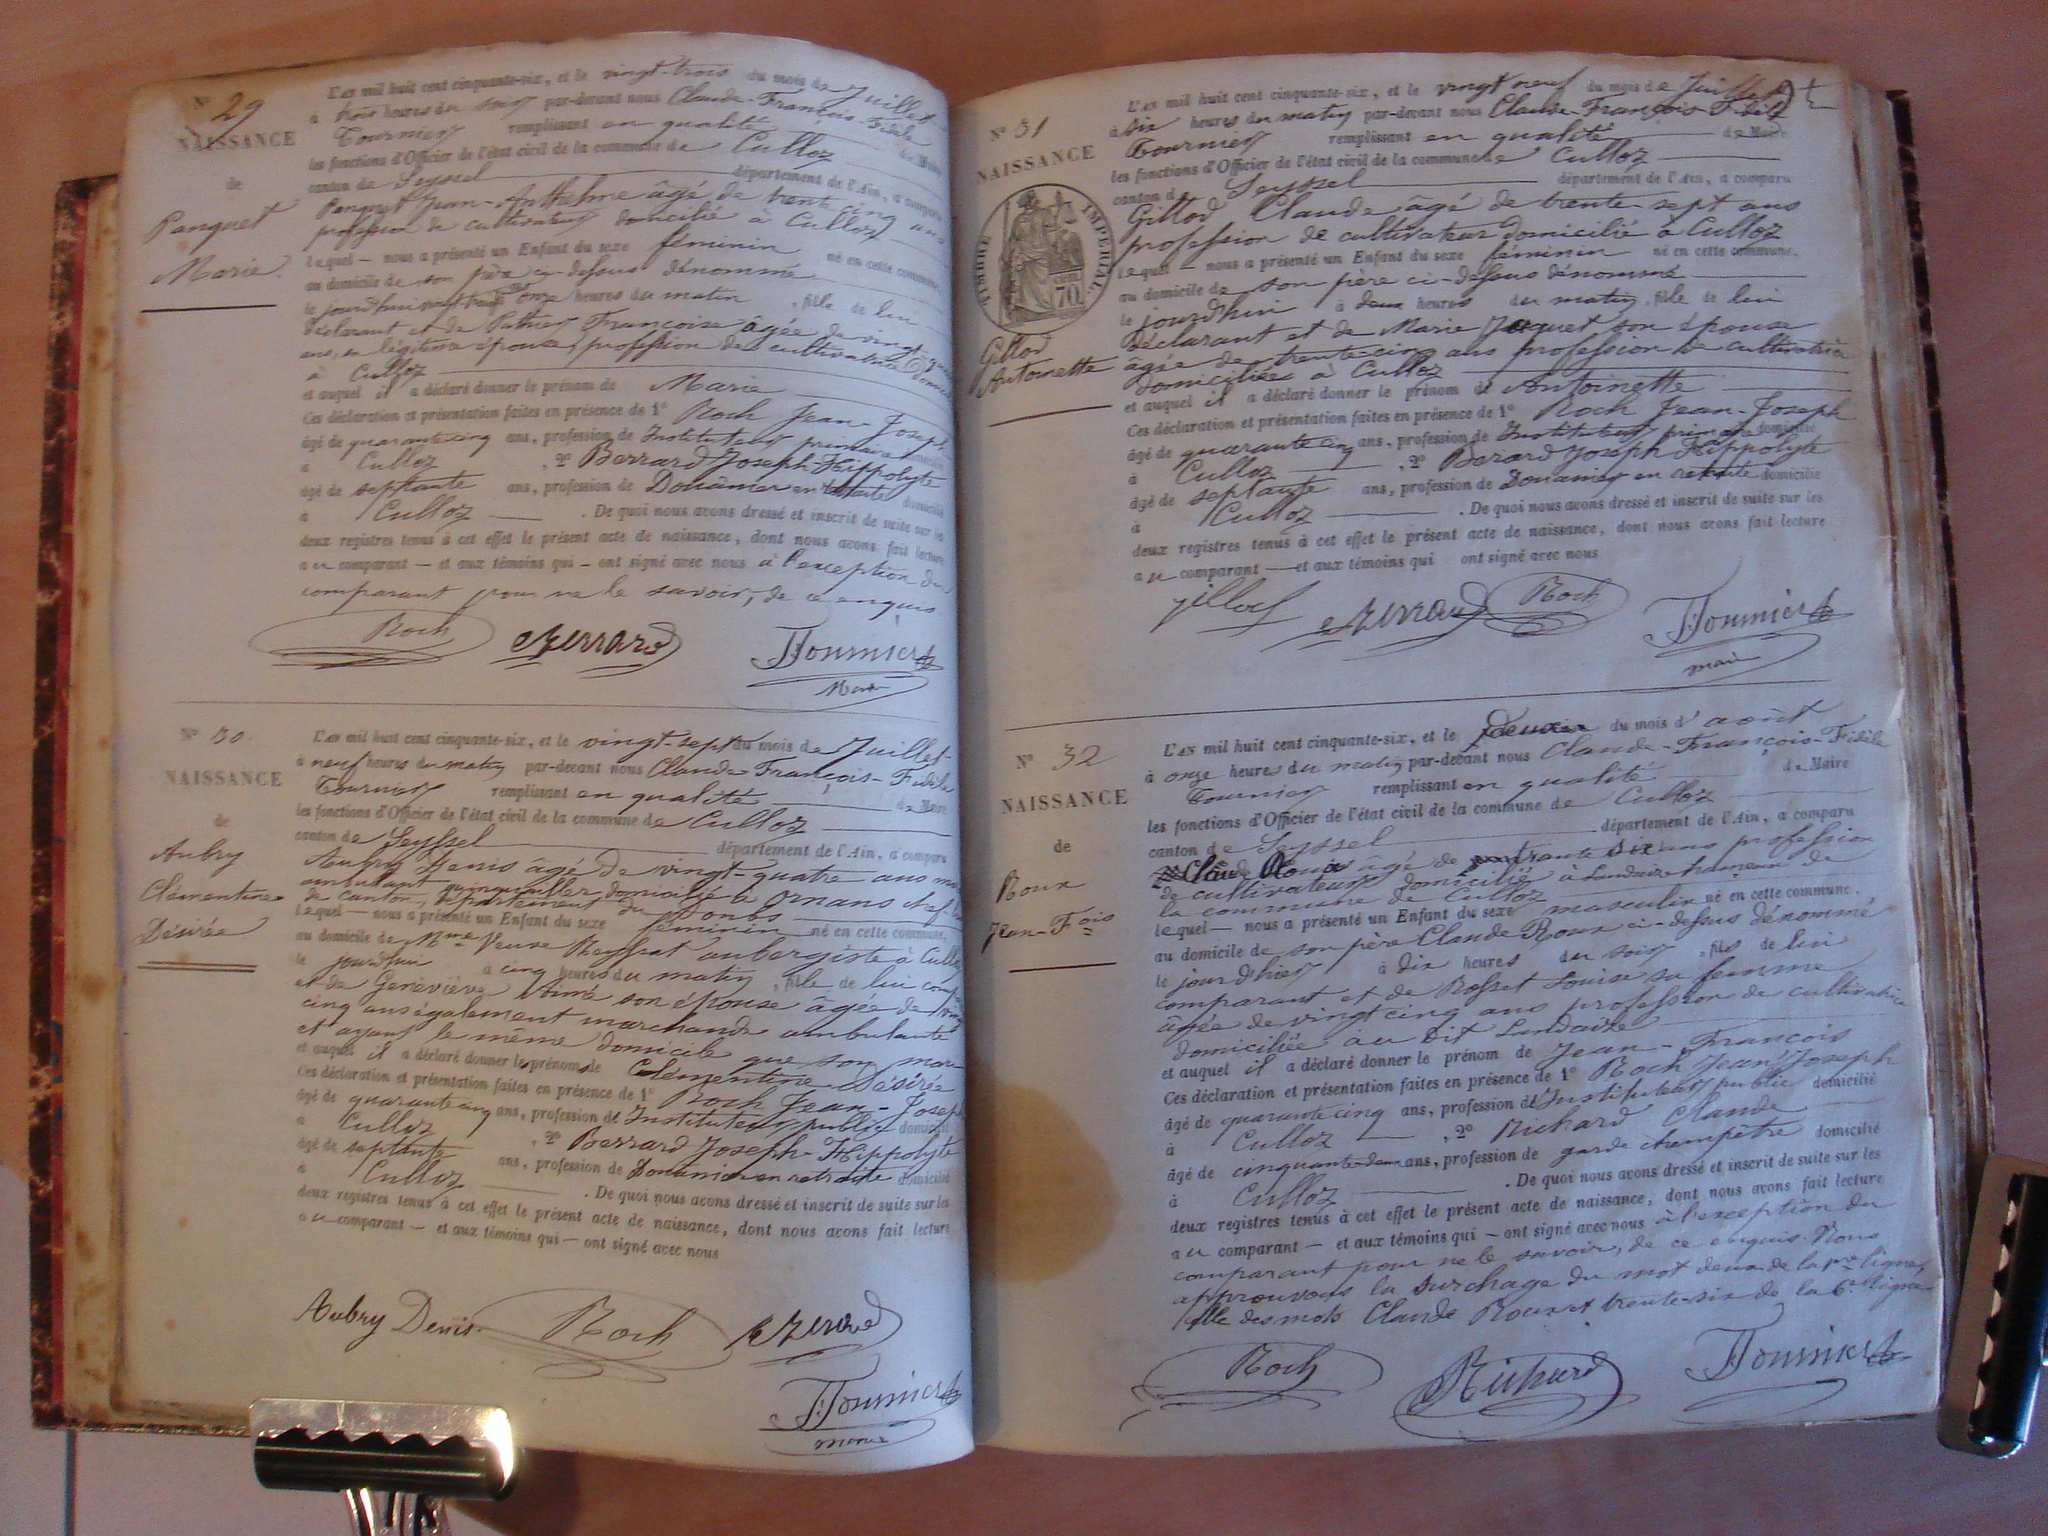 N° 29
NAISSANCE
de
Panquet
Marie
L'AN mil huit cent cinquante-six, et le vingt-trois du mois de Juillet
à trois heures du soir par-devant nous Claude-François Fidèle
Tournier remplissant en qualité de Maire
les fonctions d'Officier de l'état civil de la commune de Culloz
canton de Seyssel département de l'Ain, a comparu
Panquet Jean-Anthelme âgé de trente cinq ans
profession de cultivateur domicilié à Culloz
lequel nous a présenté un Enfant du sexe féminin né en cette commune
au domicile de son père ci-dessus dénommé
le jourd'hui vingt trois onze heures du matin, fille de lui
déclarant et de Françoise âgée de vingt
ans, sa légitime épouse, profession de cultivatrice
à Culloz
et auquel il a déclaré donner le prénom de Marie
Ces déclaration et présentation faites en présence de 1° Roch Jean-Joseph
âgé de quarante cinq ans, profession de Instituteur primaire
à Culloz, 2° Berrard Joseph-Hippolyte
âgé de septante ans, profession de Douanier en retraite domicilié
à Culloz. De quoi nous avons dressé et inscrit de suite sur les
deux registres tenus à cet effet le présent acte de naissance, dont nous avons fait lecture
au comparant et aux témoins qui ont signé avec nous à l'exception du
comparant pour ne le savoir, de ce enquis
Roch Berrard Tournier
Maire
N° 30
NAISSANCE
de
Aubry
Clémentine
Désirée
L'AN mil huit cent cinquante-six, et le vingt-sept du mois de Juillet
à neuf heures du matin par-devant nous Claude-François-Fidèle
Tournier remplissant en qualité de Maire
les fonctions d'Officier de l'état civil de la commune de Culloz
canton de Seyssel département de l'Ain, a comparu
Aubry Denis âgé de vingt-quatre ans
ambulant quinquailler domicilié à Ornans chef-lieu
de canton, département du Doubs
lequel nous a présenté un Enfant du sexe féminin né en cette commune,
au domicile de Mme Veuve Meyssat aubergiste à Culloz
le jourd'hui à cinq heures du matin, fille de lui
et de Geneviève son épouse âgée de vingt
cinq ans également marchande ambulante
et ayant le même domicile que son mari
et auquel il a déclaré donner les prénoms de Clémentine Désirée
Ces déclaration et présentation faites en présence de 1° Roch Jean-Joseph
âgé de quarante cinq ans, profession d'Instituteur public domicilié
à Culloz, 2° Berrard Joseph-Hippolyte
âgé de septante ans, profession de Douanier en retraite domicilié
à Culloz. De quoi nous avons dressé et inscrit de suite sur les
deux registres tenus à cet effet le présent acte de naissance, dont nous avons fait lecture
au comparant et aux témoins qui ont signé avec nous
Aubry Denis Roch Berrard
Tournier
maire
N° 31
NAISSANCE
TIMBRE IMPERIAL
70
Gillod
Antoinette
L'AN mil huit cent cinquante-six, et le vingt neuf du mois de Juillet
à six heures du matin par-devant nous Claude-François Fidèle
Tournier remplissant en qualité de Maire
les fonctions d'Officier de l'état civil de la commune de Culloz
canton de Seyssel département de l'Ain, a comparu
Gillod Claude âgé de trente-sept ans
profession de cultivateur domicilié à Culloz
lequel nous a présenté un Enfant du sexe féminin né en cette commune.
au domicile de son père ci-dessus dénommé
le jourd'hui à deux heures du matin, fille de lui
déclarant et de Marie son épouse
âgée de trente-cinq ans profession de cultivatrice
domiciliée à Culloz
et auquel il a déclaré donner le prénom de Antoinette
Ces déclaration et présentation faites en présence de 1° Roch Jean-Joseph
âgé de quarante cinq ans, profession de Instituteur primaire domicilié
à Culloz, 2° Berard Joseph Hippolyte
âgé de septante ans, profession de Douanier en retraite domicilié
à Culloz. De quoi nous avons dressé et inscrit de suite sur les
deux registres tenus à cet effet le présent acte de naissance, dont nous avons fait lecture
au comparant et aux témoins qui ont signé avec nous
gillod Berrard Roch Tournier
maire
N° 32
NAISSANCE
de
Roux
Jean-Fois
L'AN mil huit cent cinquante-six, et le deux du mois d'août
à onze heures du matin par-devant nous Claude-François-Fidèle
Tournier remplissant en qualité de Maire
les fonctions d'Officier de l'état civil de la commune de Culloz
canton de Seyssel département de l'Ain, a comparu
Claude Roux âgé de trente six ans profession
de cultivateur domicilié à Landaize hameau de
la commune de Culloz
lequel nous a présenté un Enfant du sexe masculin né en cette commune,
au domicile de son père Claude Roux ci-dessus dénommé
le jour d'hier à dix heures du soir, fils de lui
comparant et de Rosset Louise sa femme
âgée de vingt cinq ans profession de cultivatrice
domiciliée au dit Landaize
et auquel il a déclaré donner le prénom de Jean-François
Ces déclaration et présentation faites en présence de 1° Roch Jean Joseph
âgé de quarante cinq ans, profession d'Instituteur public domicilié
à Culloz, 2° Richard Claude
âgé de cinquante-deux ans, profession de garde champêtre domicilié
à Culloz. De quoi nous avons dressé et inscrit de suite sur les
deux registres tenus à cet effet le présent acte de naissance, dont nous avons fait lecture
au comparant et aux témoins qui ont signé avec nous à l'exception du
comparant pour ne le savoir, de ce enquis. Nous
approuvons la surchage du mot deux de la 1re ligne,
celle des mots Claude Roux et trente-six de la 6e ligne
Roch Richard Tournier